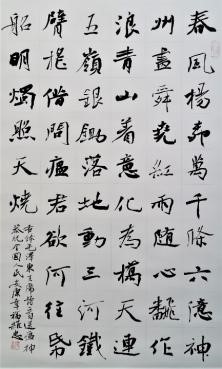 春風楊柳萬千條六億神
州盡舜堯紅雨隨心翻作
浪青山着意化為橋天連
五嶺銀鋤落地動三河鐵
臂搖借問瘟君欲何往帋
船明燭照天燒
毛澤東主席詩二首送瘟神
恭祝全國人民安康幸福